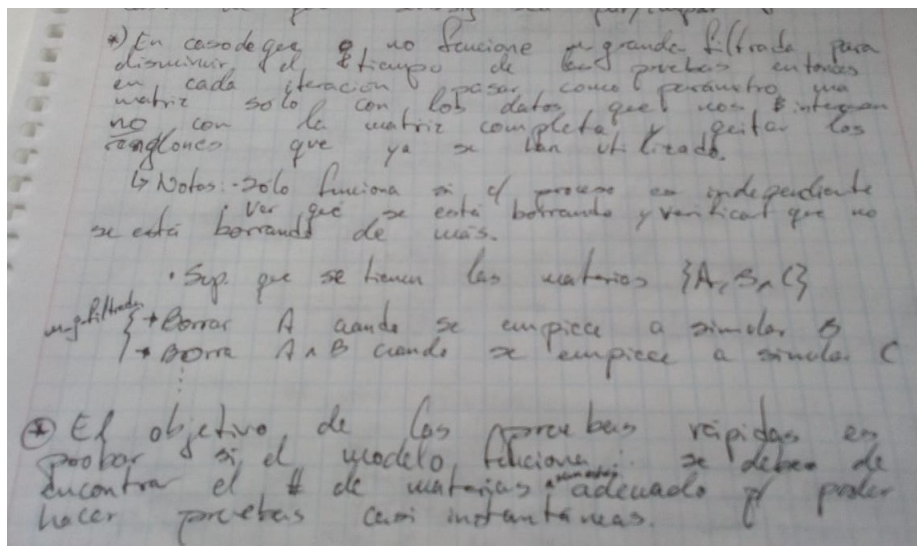 *) En caso de que no funcione m_grande_filtrada para
disminuir el tiempo de las pruebas entonces
en cada iteración pasar como parámetro una
matriz solo con los datos que nos integran
no con la matriz completa y quitar los
renglones que ya se han utilizado.
↳ Notas: - Sólo funciona si el proceso es independiente
· Ver que se está borrando y verificar que no
se está borrando de más.
· Sup. que se tienen las materias {A, B, C}
m_g_filtrada { → Borrar A cuando se empiece a simular B
→ Borra A ∧ B cuando se empiece a simular C
⋮
⊛ El objetivo de las pruebas rápidas es
probar si el modelo funciona ∴ se debe de
encontrar el # de materias adecuado p/ poder
hacer pruebas casi instantáneas.